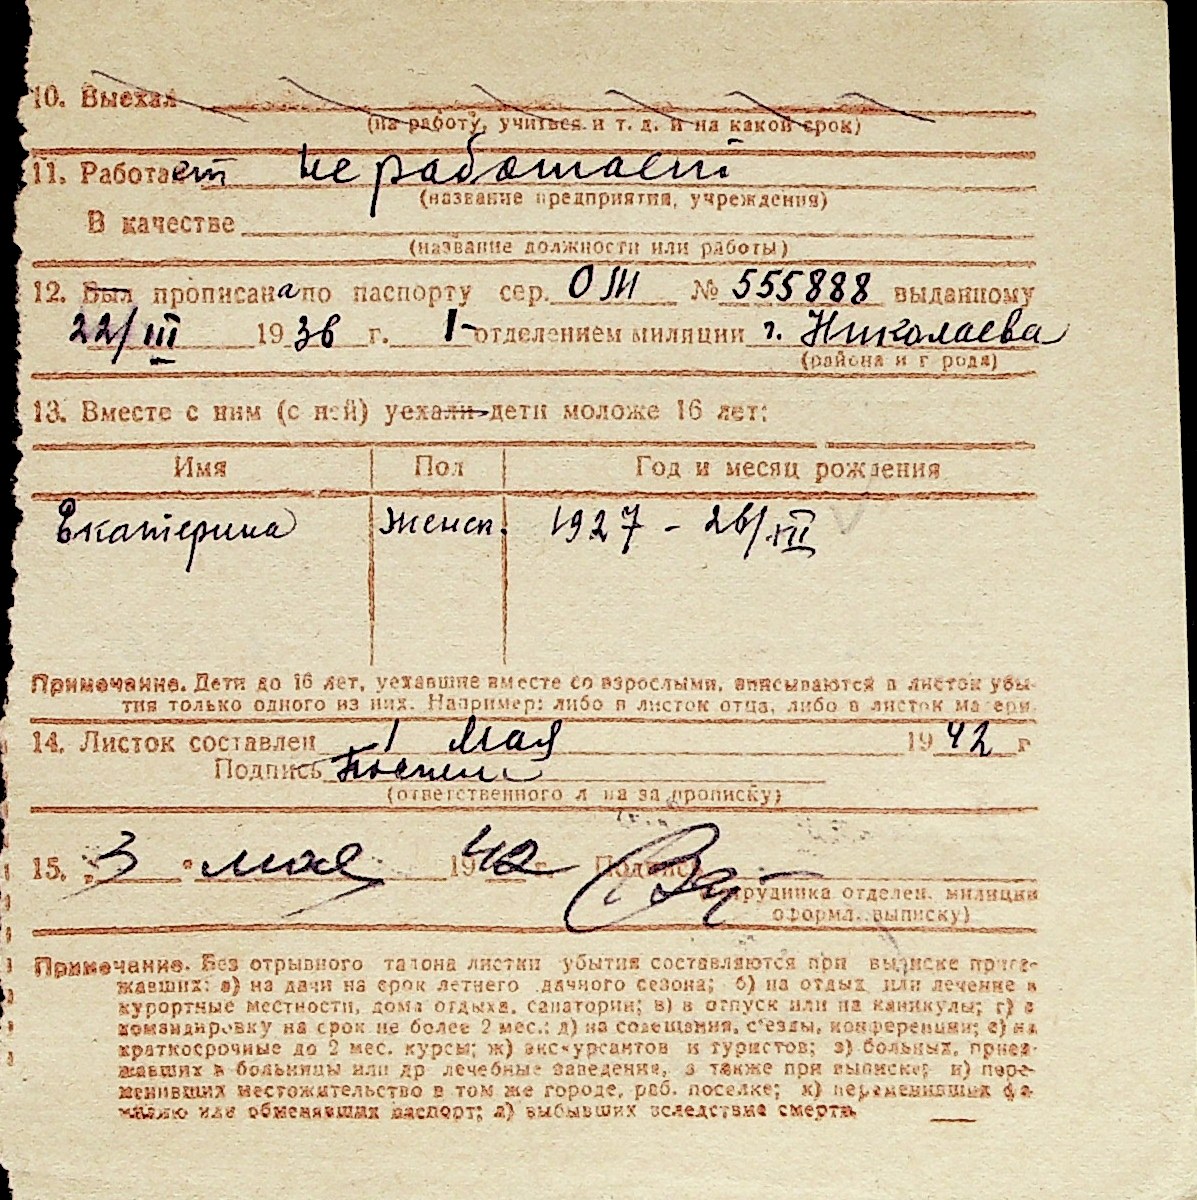 10. Выехал
(на работу, учиться и т. д. и на какой срок)
11. Работает не работает
(название предприятия, учреждения)
В качестве
(название должности или работы)
12. Был прописана по паспорту сер. № 555888 выданному
22/III 1936 г. 1- отделением милиции г. Николаева
(района и г рода)
13. Вместе с ним (с ней) уехали дети моложе 16 лет:
Имя Пол Год и месяц рождения
Екатерина Женск. 1927 - 26/XII
Примечание. Дети до 16 лет, уехавшие вместе со взрослыми, вписываются в листок убы-
тия только одного из них. Например: либо в листок отца, либо в листок матери.
14. Листок составлен 1 Мая 1942 г
Подпись
(ответственного л на за прописку)
15. "3" мая 1942 г. Подпись
трудника отделен. милиции
оформл. выписку)
Примечание. Без отрывного талона листки убытия составляются при выписке приез-
жавших: а) на дачи на срок летнего дачного сезона; б) на отдых или лечение в
курортные местности, дома отдыха, санатории; в) в отпуск или на каникулы; г) в
командировку на срок не более 2 мес.; д) на совещания, с'езды, конференции; е) на
краткосрочные до 2 мес. курсы; ж) экскурсантов и туристов; з) больных, приез-
жавших в больницы или др лечебные заведения, а также при выписке; и) пере-
менивших местожительство в том же городе, раб. поселке; к) переменивших фа-
милию или обменявших паспорт; л) выбывших вследствие смерти.